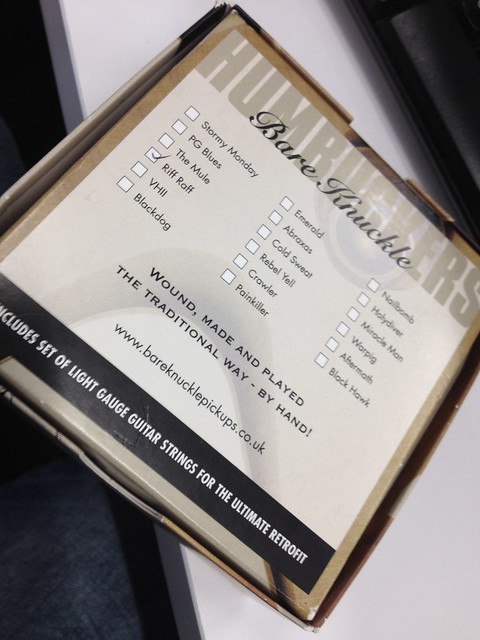 HUMBUCKERS
Bare Knuckle
Stormy Monday
PG Blues
The Mule
Riff Raff
VHII
Blackdog
Emerald
Abraxas
Cold Sweat
Rebel Yell
Crawler
Painkiller
Nailbomb
Holydiver
Miracle Man
Warpig
Aftermath
Black Hawk
WOUND, MADE AND PLAYED
THE TRADITIONAL WAY - BY HAND!
www.bareknucklepickups.co.uk
INCLUDES SET OF LIGHT GAUGE GUITAR STRINGS FOR THE ULTIMATE RETROFIT